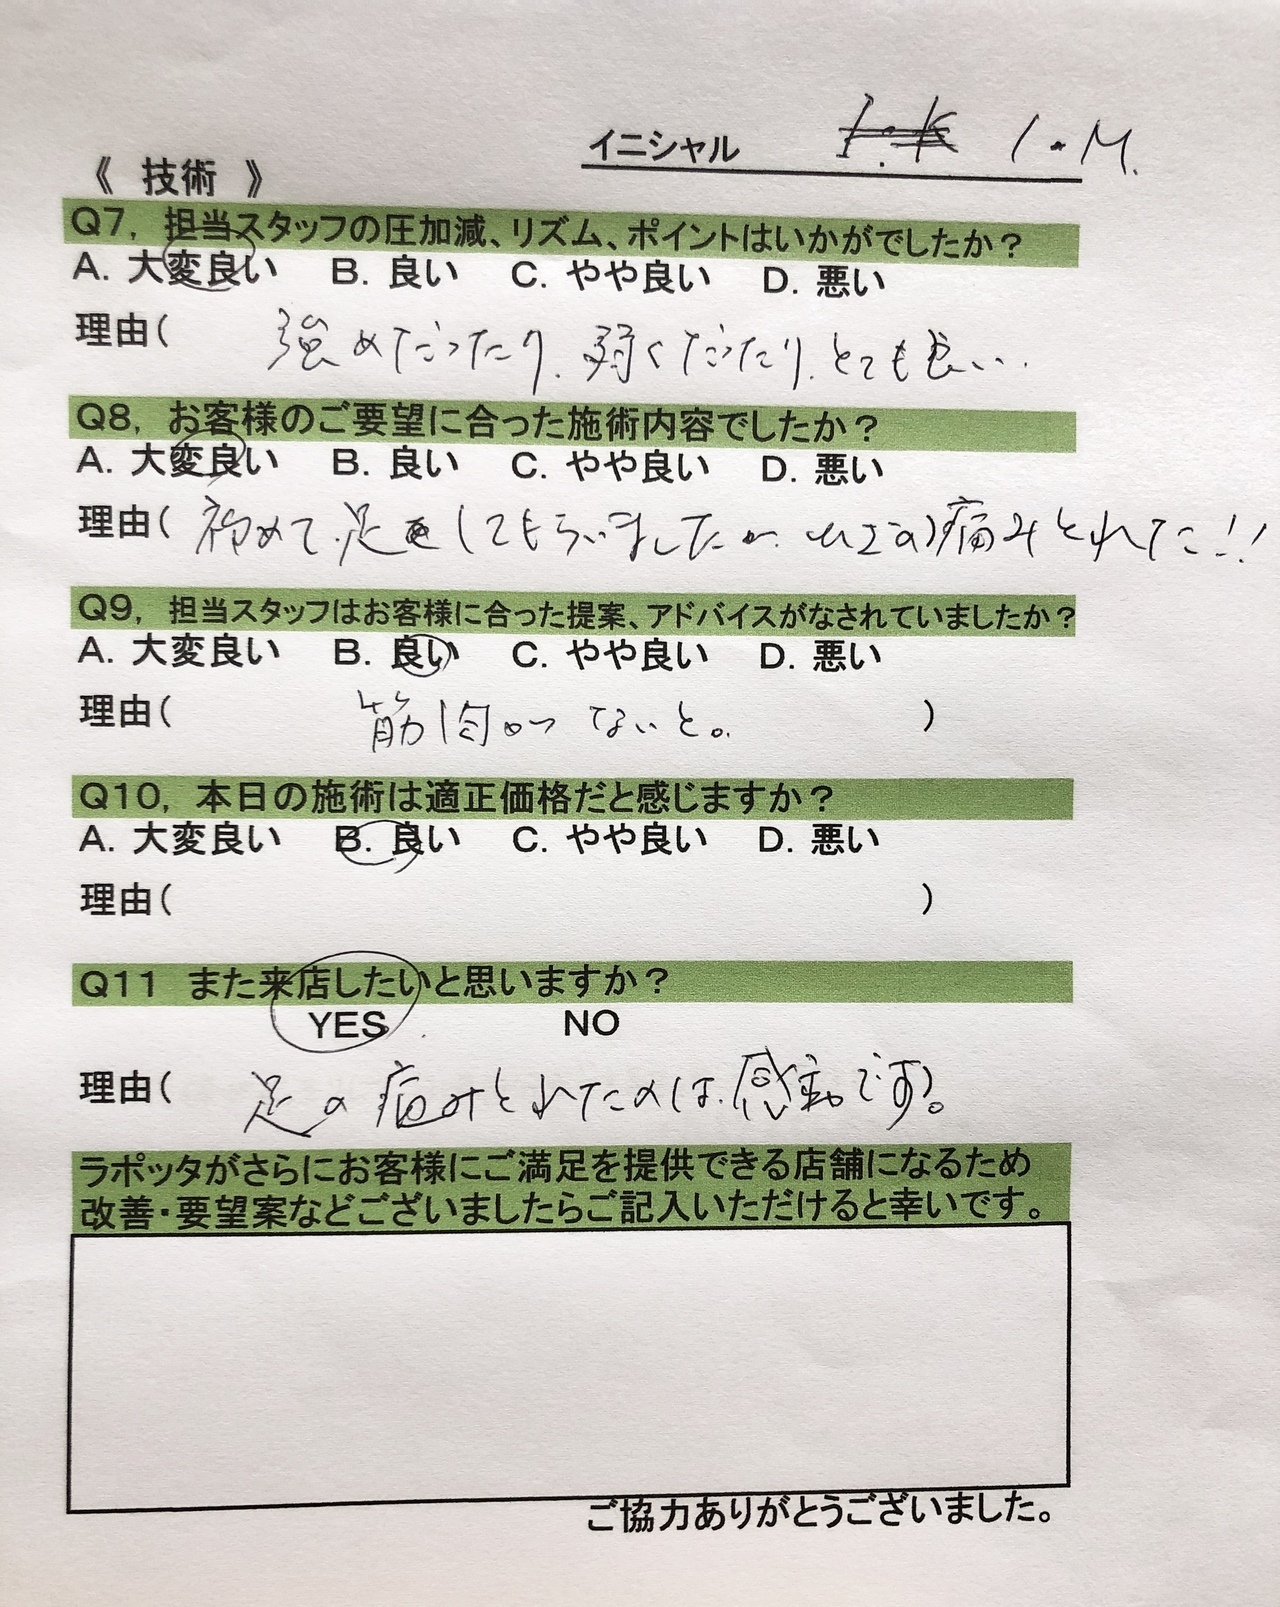 イニシャル I.K I.M.
《 技術 》
Q7, 担当スタッフの圧加減、リズム、ポイントはいかがでしたか？
A. 大変良い B. 良い C. やや良い D. 悪い
理由( 強めだったり、弱くだったり、とても良い.
Q8, お客様のご要望に合った施術内容でしたか？
A. 大変良い B. 良い C. やや良い D. 悪い
理由( 初めて、足をしてもらいましたが、ひざの痛みとれた!!
Q9, 担当スタッフはお客様に合った提案、アドバイスがなされていましたか？
A. 大変良い B. 良い C. やや良い D. 悪い
理由( 筋肉がつてないと。 )
Q10, 本日の施術は適正価格だと感じますか？
A. 大変良い B. 良い C. やや良い D. 悪い
理由( )
Q11 また来店したいと思いますか？
YES NO
理由( 足の痛みとれたのは、感動です)。
ラポッタがさらにお客様にご満足を提供できる店舗になるため
改善・要望案などございましたらご記入いただけると幸いです。
ご協力ありがとうございました。